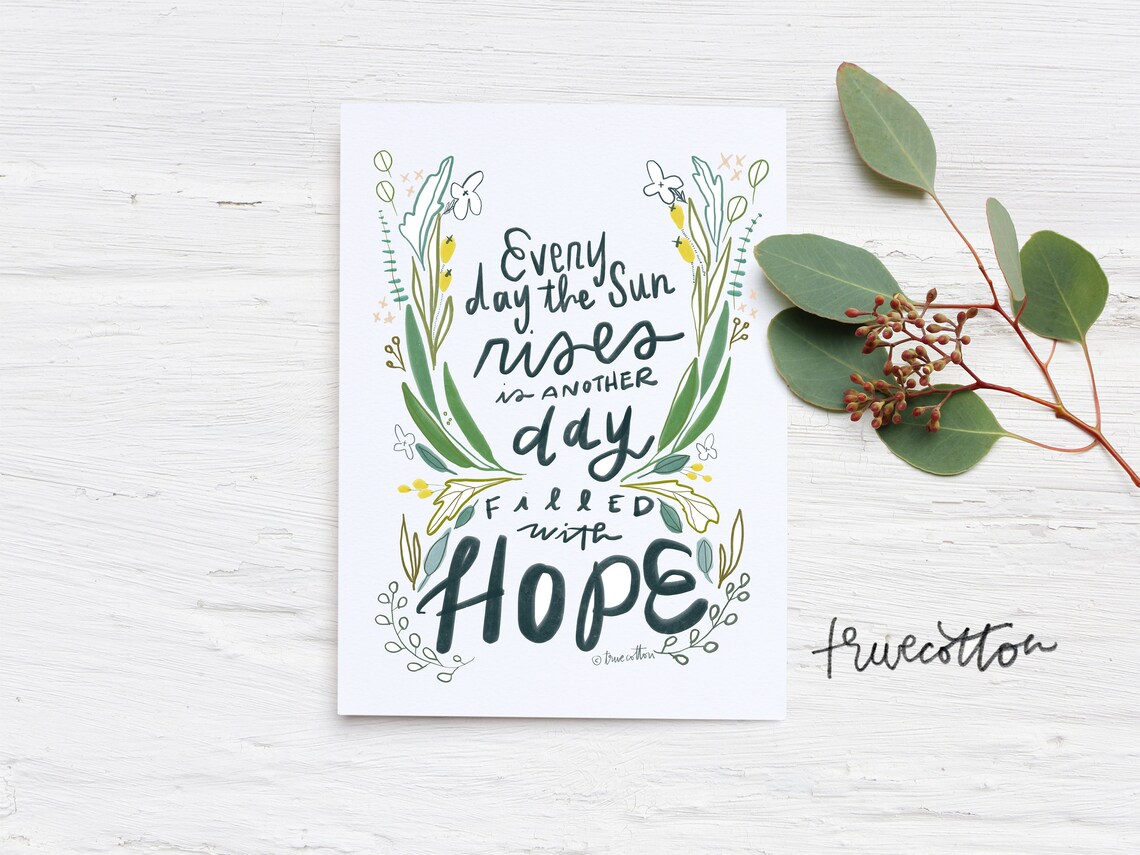 Every
day the Sun
rises
is ANOTHER
day
FillED
with
HOPE
© truecotton
truecotton